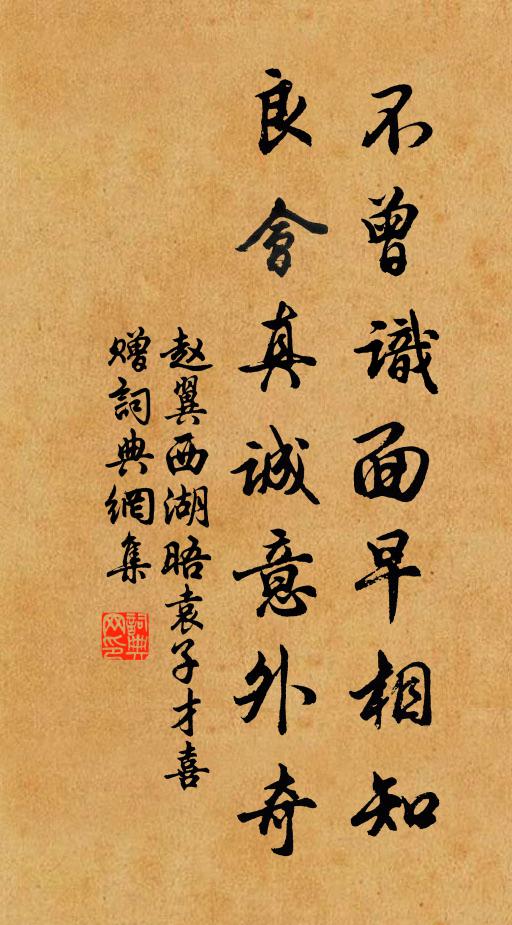 不曾識面早相知
良會真誠意外奇
赵翼西湖晤袁子才喜
赠詞典網集
詞典
网印